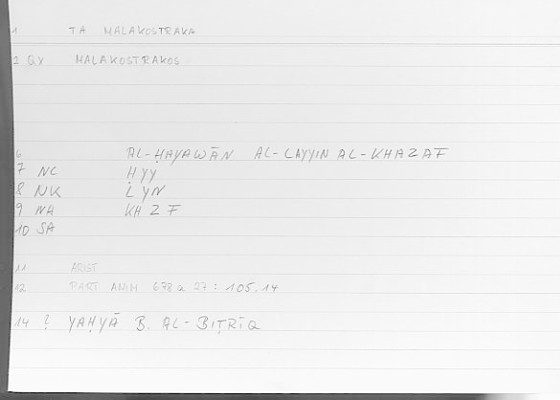 1 TA MALAKOSTRAKA
2 QY MALAKOSTRAKOS
6 AL-ḤAYAWĀN AL-LAYYIN AL-KHAZAF
7 NC ḤYY
8 NK LYN
9 NA KHZF
10 SA
11 ARIST
12 PART ANIM 678a 27 : 105.14
14 ? YAḤYĀ B. AL-BIṬRĪQ